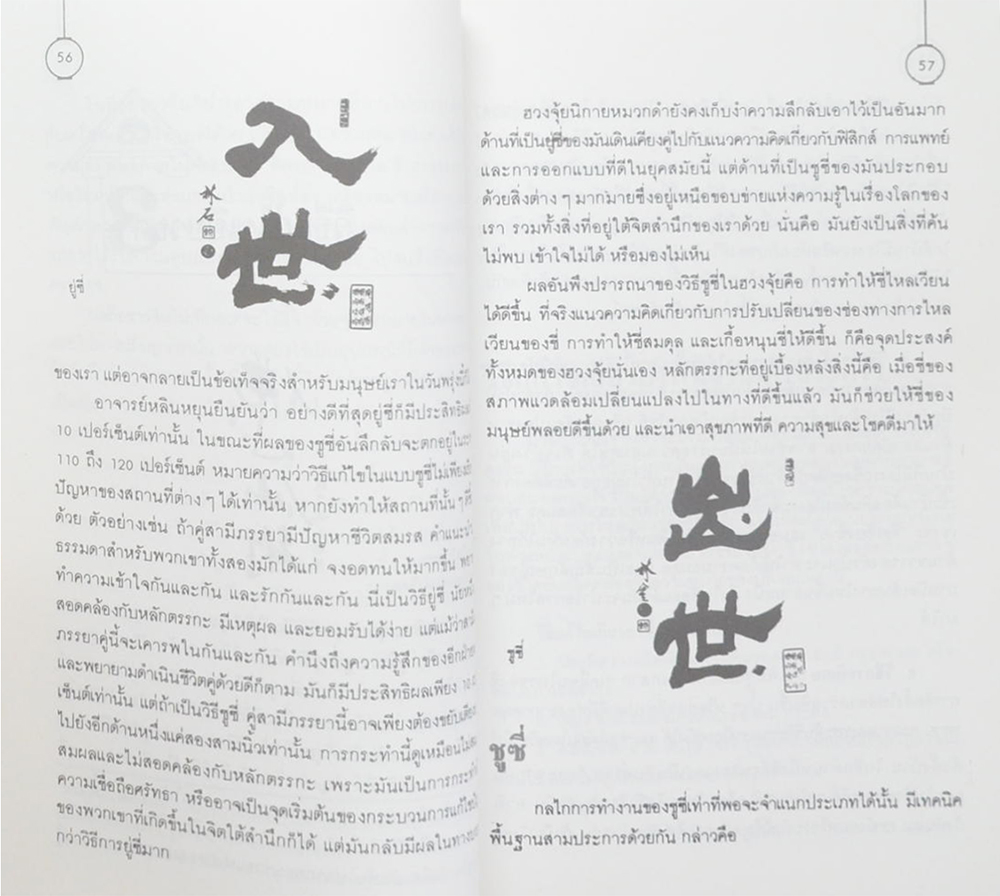 56
入
世
林石
ยู่ซี่
ของเรา แต่อาจกลายเป็นข้อเท็จจริงสำหรับมนุษย์เราในวันพรุ่งนี้ก็
อาจารย์หลินหยุนยืนยันว่า อย่างดีที่สุดยู่ซี่ก็มีประสิทธิผล
10 เปอร์เซ็นต์เท่านั้น ในขณะที่ผลของชูซี่อันลึกลับจะตกอยู่ใน
110 ถึง 120 เปอร์เซ็นต์ หมายความว่าวิธีแก้ไขในแบบชูซี่ไม่เพียง
ปัญหาของสถานที่ต่าง ๆ ได้เท่านั้น หากยังทำให้สถานที่นั้น ๆ
ด้วย ตัวอย่างเช่น ถ้าคู่สามีภรรยามีปัญหาชีวิตสมรส คำแนะนำ
ธรรมดาสำหรับพวกเขาทั้งสองมักได้แก่ จงอดทนให้มากขึ้น
ทำความเข้าใจกันและกัน และรักกันและกัน นี่เป็นวิธียู่ซี่
สอดคล้องกับหลักตรรกะ มีเหตุผล และยอมรับได้ง่าย แต่แม้ว่า
ภรรยาคู่นี้จะเคารพในกันและกัน คำนึงถึงความรู้สึกของอีกฝ่าย
และพยายามดำเนินชีวิตคู่ด้วยดีก็ตาม มันก็มีประสิทธิผลเพียง
เซ็นต์เท่านั้น แต่ถ้าเป็นวิธีชูซี่ คู่สามีภรรยานี้อาจเพียงต้องขยับ
ไปยังอีกด้านหนึ่งแค่สองสามนิ้วเท่านั้น การกระทำนี้ดูเหมือน
สมผลและไม่สอดคล้องกับหลักตรรกะ เพราะมันเป็นการกระทำ
ความเชื่อถือศรัทธา หรืออาจเป็นจุดเริ่มต้นของกระบวนการแก้ไข
ของพวกเขาที่เกิดขึ้นในจิตใต้สำนึกก็ได้ แต่มันกลับมีผลในทาง
กว่าวิธีการยู่ซี่มาก
57
ฮวงจุ้ยนิกายหมวกดำยังคงเก็บงำความลึกลับเอาไว้เป็นอันมาก
ด้านที่เป็นยู่ซี่ของมันเดินเคียงคู่ไปกับแนวความคิดเกี่ยวกับฟิสิกส์ การแพทย์
และการออกแบบที่ดีในยุคสมัยนี้ แต่ด้านที่เป็นชูซี่ของมันประกอบ
ด้วยสิ่งต่าง ๆ มากมายซึ่งอยู่เหนือขอบข่ายแห่งความรู้ในเรื่องโลกของ
เรา รวมทั้งสิ่งที่อยู่ใต้จิตสำนึกของเราด้วย นั่นคือ มันยังเป็นสิ่งที่ค้น
ไม่พบ เข้าใจไม่ได้ หรือมองไม่เห็น
ผลอันพึงปรารถนาของวิธีชูซี่ในฮวงจุ้ยคือ การทำให้ชี่ไหลเวียน
ได้ดีขึ้น ที่จริงแนวความคิดเกี่ยวกับการปรับเปลี่ยนของช่องทางการไหล
เวียนของชี่ การทำให้ชี่สมดุล และเกื้อหนุนชี่ให้ดีขึ้น ก็คือจุดประสงค์
ทั้งหมดของฮวงจุ้ยนั่นเอง หลักตรรกะที่อยู่เบื้องหลังสิ่งนี้คือ เมื่อชี่ของ
สภาพแวดล้อมเปลี่ยนแปลงไปในทางที่ดีขึ้นแล้ว มันก็ช่วยให้ชี่ของ
มนุษย์พลอยดีขึ้นด้วย และนำเอาสุขภาพที่ดี ความสุขและโชคดีมาให้
出
世
ชูซี่
ชูซี่
กลไกการทำงานของชูซี่เท่าที่พอจะจำแนกประเภทได้นั้น มีเทคนิค
พื้นฐานสามประการด้วยกัน กล่าวคือ